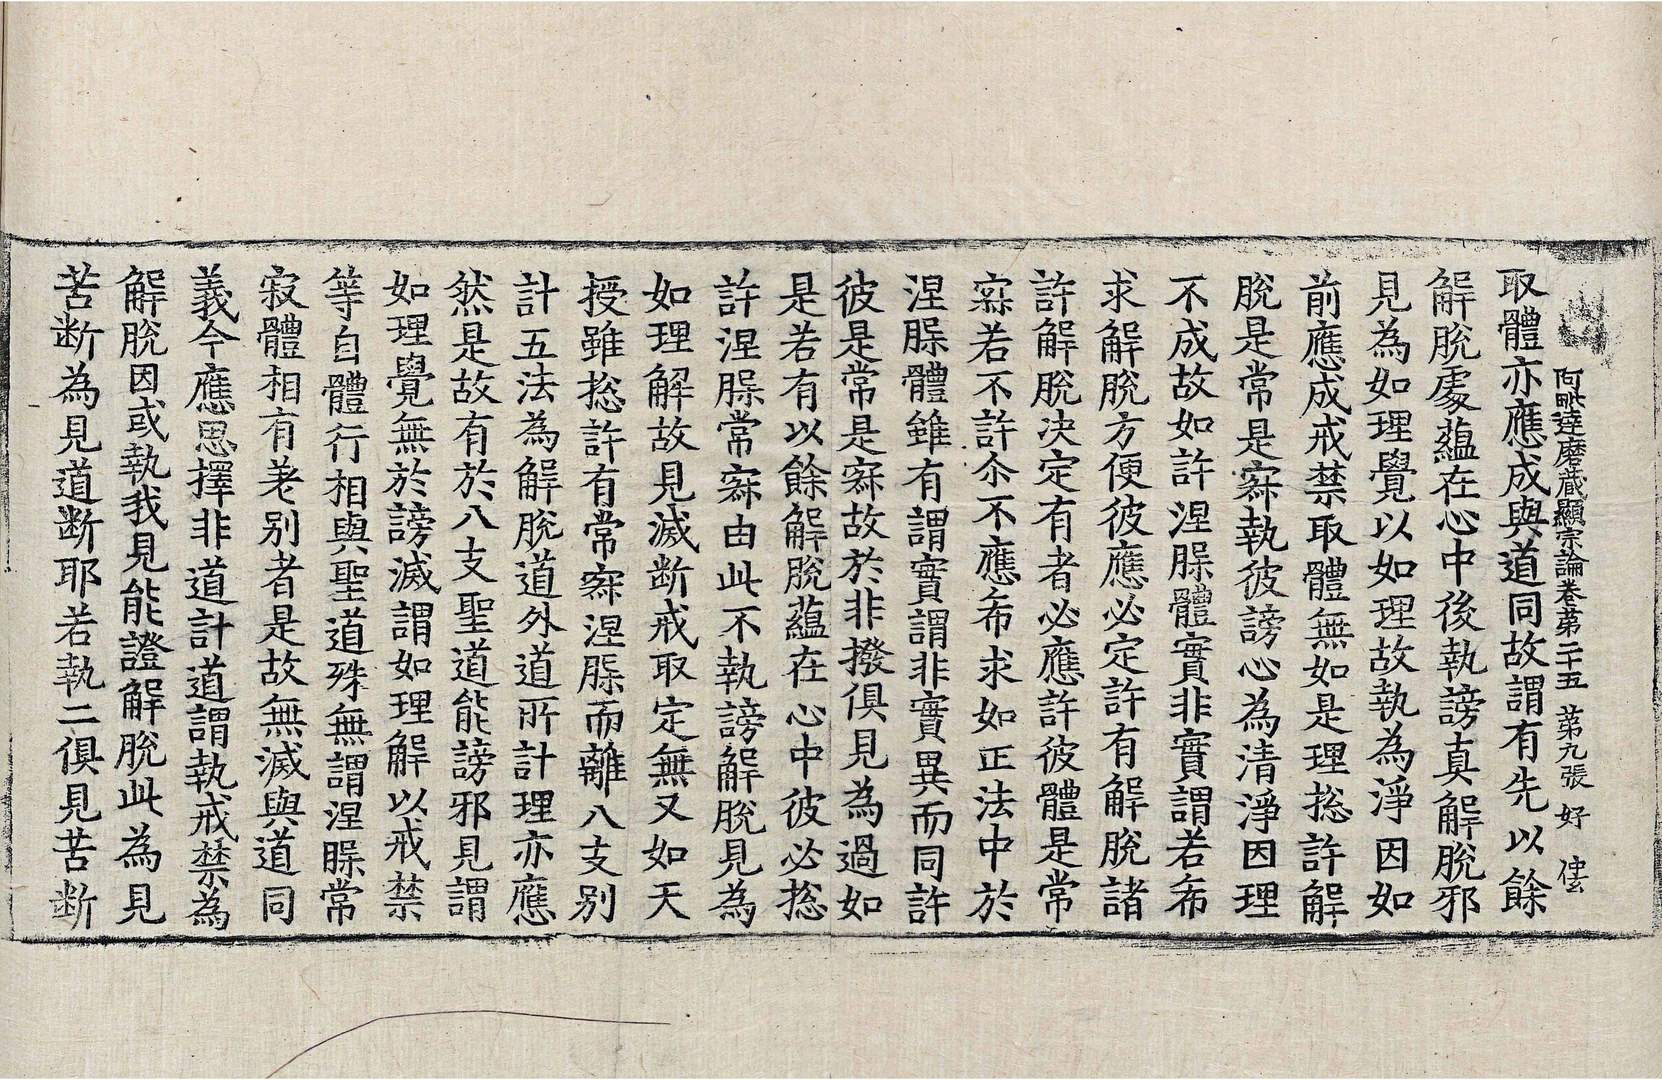 阿毗達磨藏顯宗論卷第二十五 第九張 好
取體亦應成與道同故謂有先以餘
解脫處蘊在心中後執謗真解脫邪
見為如理覺以如理故執為淨因如
前應成戒禁取體無如是理捴許解
脫是常是寂執彼謗心為清淨因理
不成故如許涅槃體實非實謂若布
求解脫方便彼應必定許有解脫諸
許解脫決定有者必應許彼體是常
寂若不許尒不應布求如正法中於
涅槃體雖有謂實謂非實異而同許
彼是常是寂故於非撥俱見為過如
是若有以餘解脫蘊在心中彼必捴
許涅槃常寂由此不執謗解脫見為
如理解故見滅断戒取定無又如天
授雖捴許有常寂涅槃而離八支別
計五法為解脫道外道所計理亦應
然是故有於八支聖道能謗邪見謂
如理覺無於謗滅謂如理解以戒禁
等自體行相與聖道殊無謂涅槃常
寂體相有差別者是故無滅與道同
義今應思擇非道計道謂執戒禁為
解脫因或執我見能證解脫此為見
苦断為見道断耶若執二俱見苦断